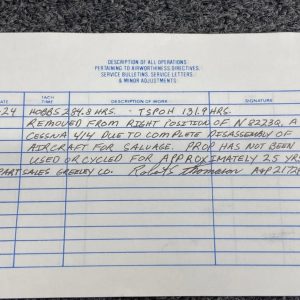 DESCRIPTION OF ALL OPERATIONS
PERTAINING TO AIRWORTHINESS DIRECTIVES,
SERVICE BULLETINS, SERVICE LETTERS,
& MINOR ADJUSTMENTS.
DATE TACH TIME DESCRIPTION OF WORK SIGNATURE
-24 HOBBS 284.8 HRS. TSPOH 131.9 HRS.
REMOVED FROM RIGHT POSITION OF N8273Q, A
CESSNA 414 DUE TO COMPLETE DISASSEMBLY OF
AIRCRAFT FOR SALVAGE. PROP HAS NOT BEEN
USED OR CYCLED FOR APPROXIMATELY 25 YRS
PART SALES GREELEY CO. Robert S Thomason A&P 21728